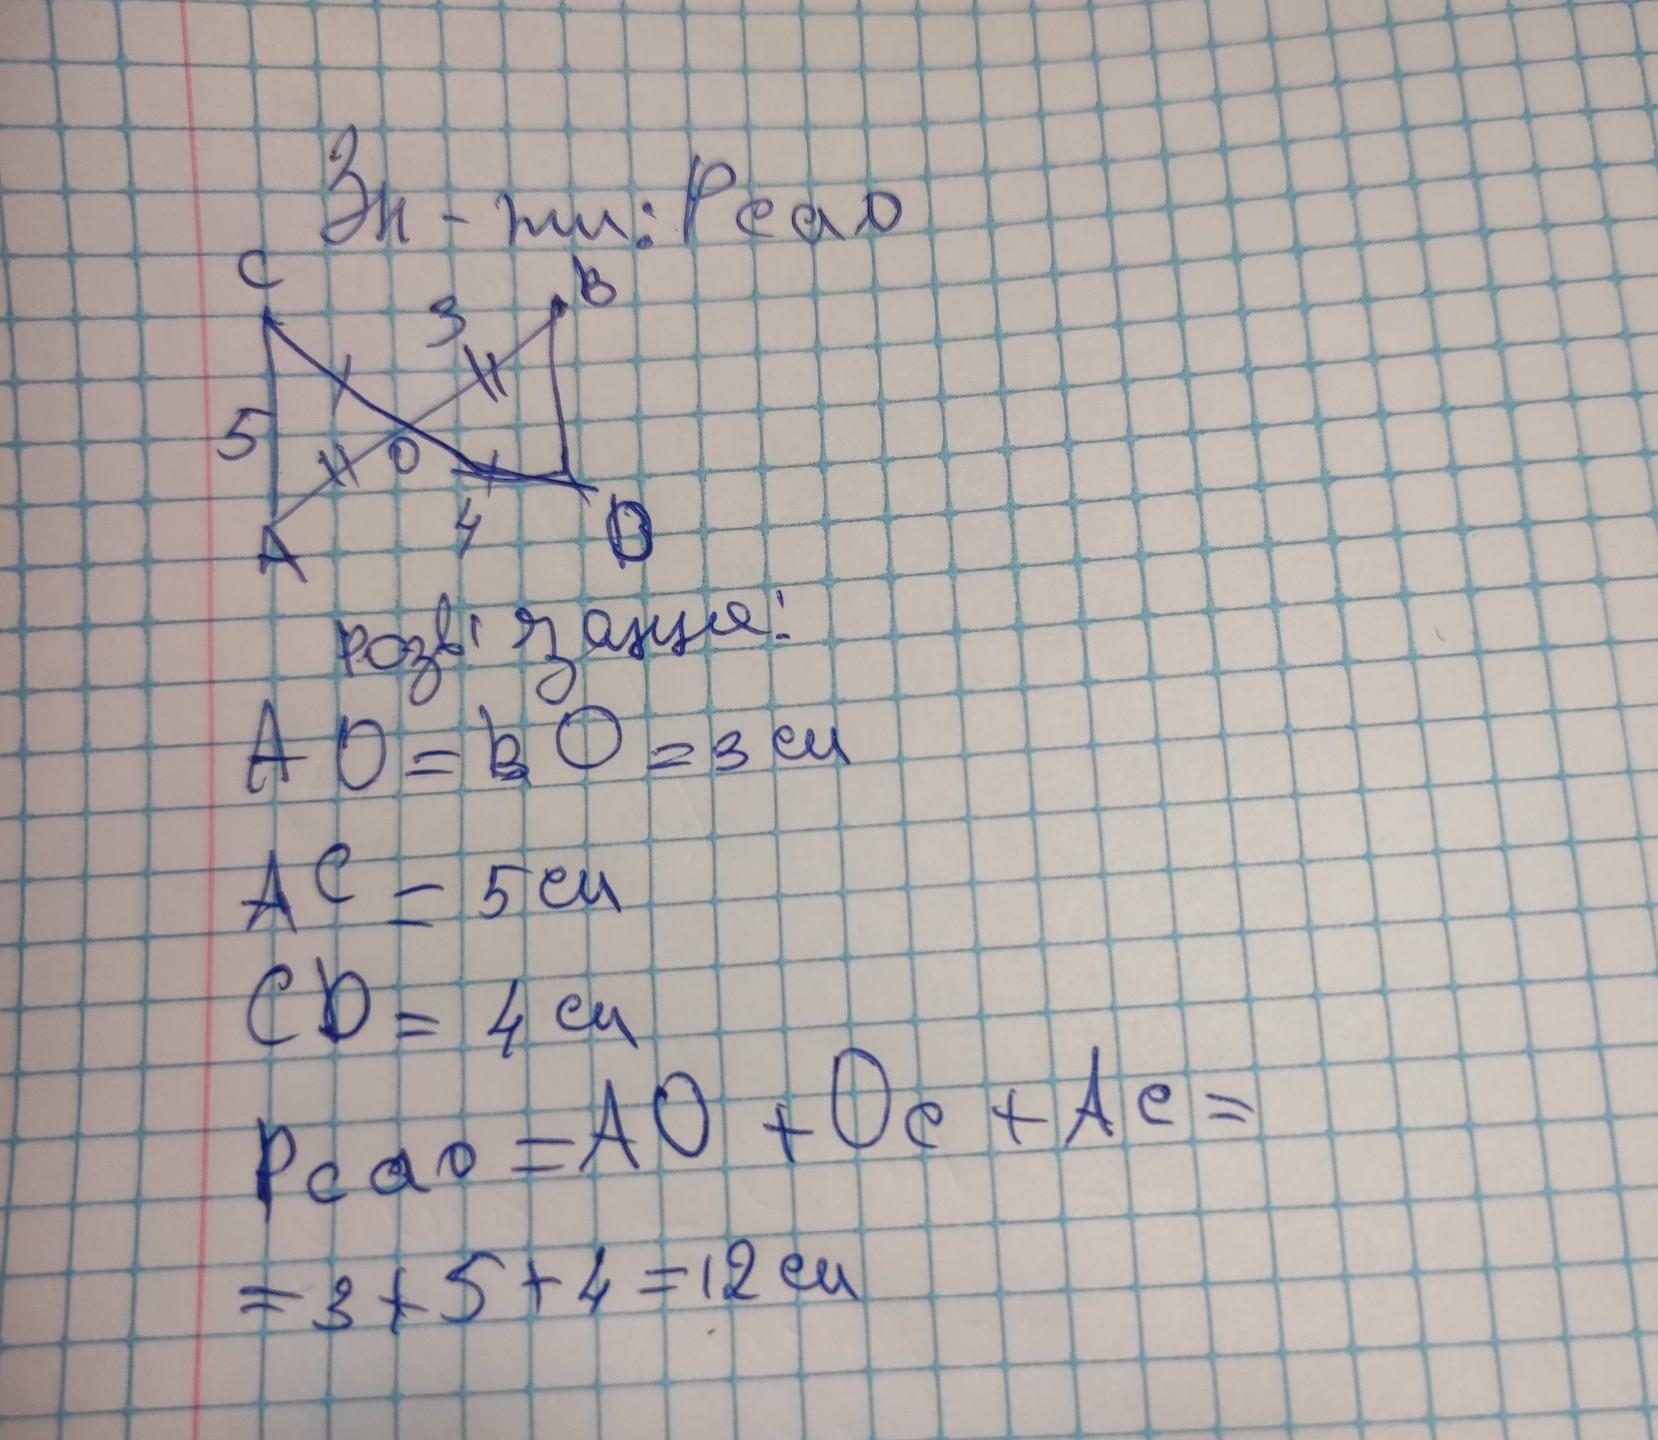 Зн-ти: Pcao
C
B
3
5
O
A
4
D
розвізання:
AO = BO = 3 см
AC = 5 см
CD = 4 см
Pcao = AO + Oc + Ac =
= 3 + 5 + 4 = 12 см